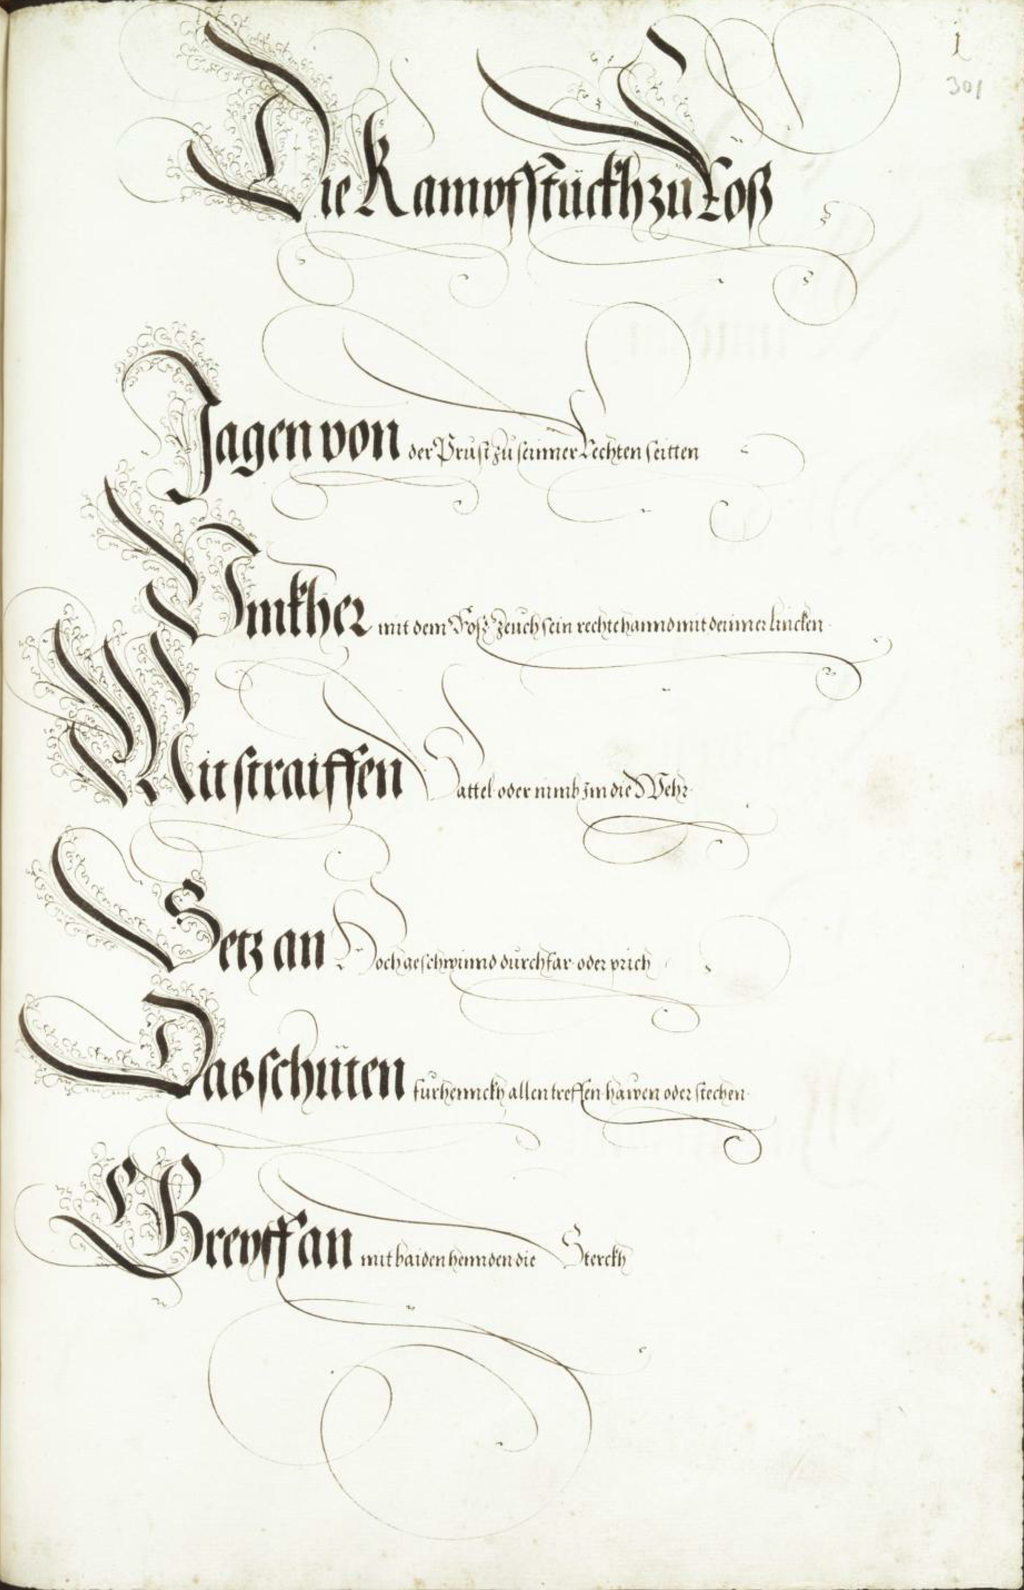 1
301
Die Kampfstückh zu Roß
Jagen von der Prust zu seinner Rechten seitten
Winkher mit dem Roß Zeuch sein rechte hannd mit deinner lincken
Mit straiffen Sattel oder nimb Im die Wehr
Setz an Hoch geschwinnd durchfar oder prich
Das schüten fur henngkh allen treffen hawen oder stechen
Greyff an mit baiden hennden die Sterckh